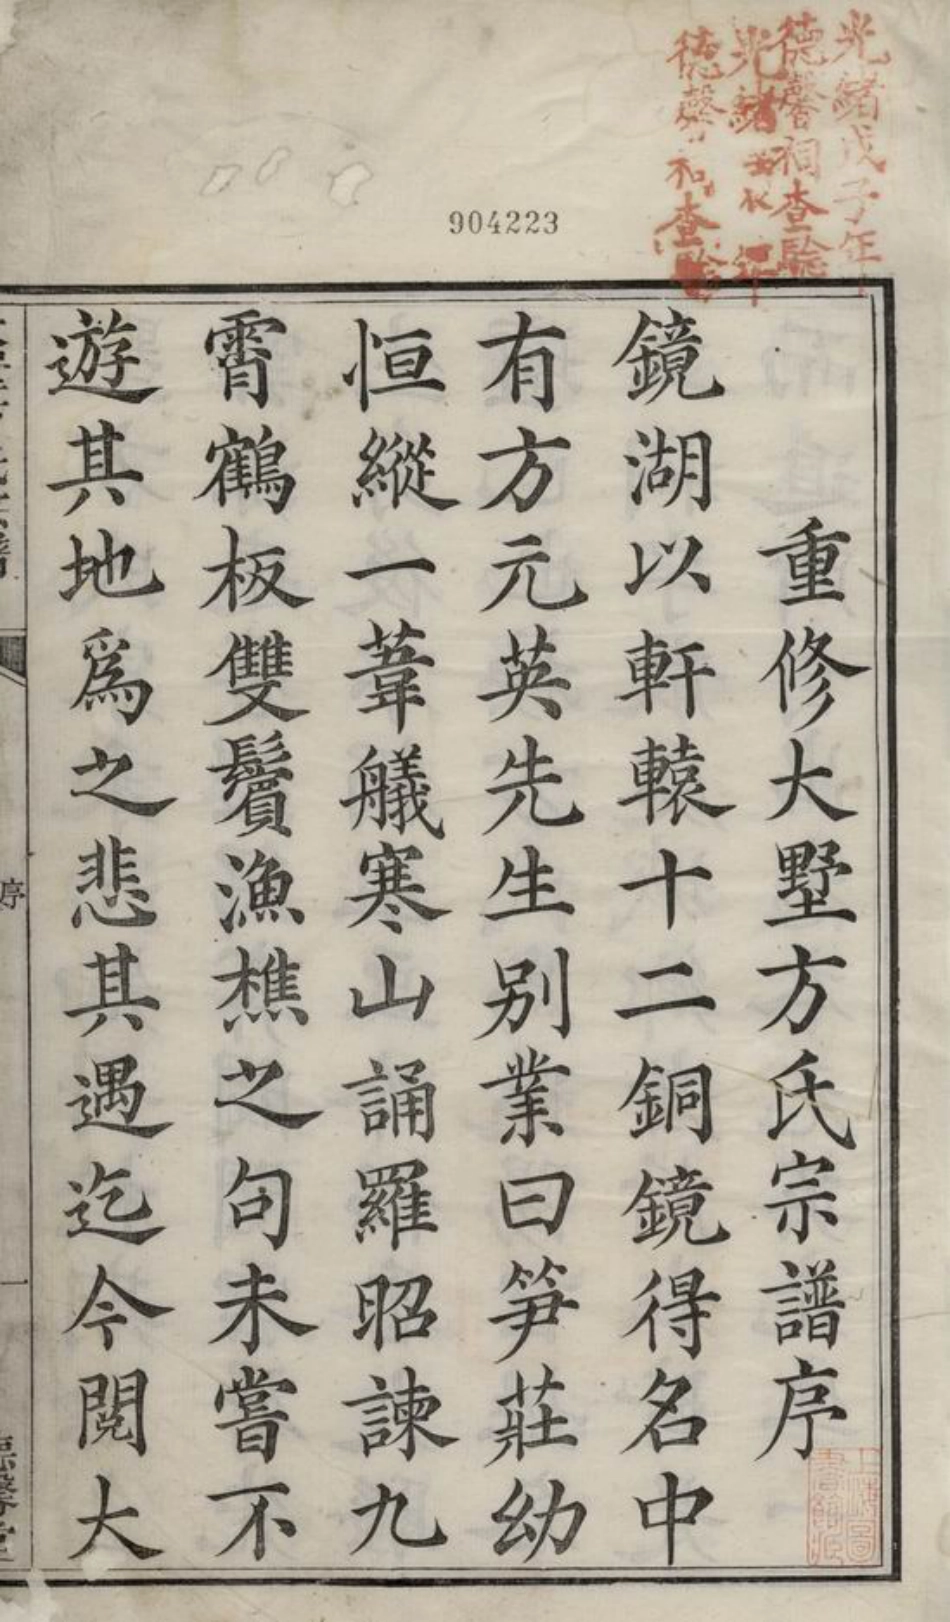 光緒戊子年
德馨祠查驗
光緒
德馨祠查驗
904223
重修大墅方氏宗譜序
鏡湖以軒轅十二銅鏡得名中
有方元英先生別業曰笋莊幼
恒縱一葦艤寒山誦羅昭諫九
霄鶴板雙鬢漁樵之句未嘗不
遊其地爲之悲其遇迄今閱大
序
一